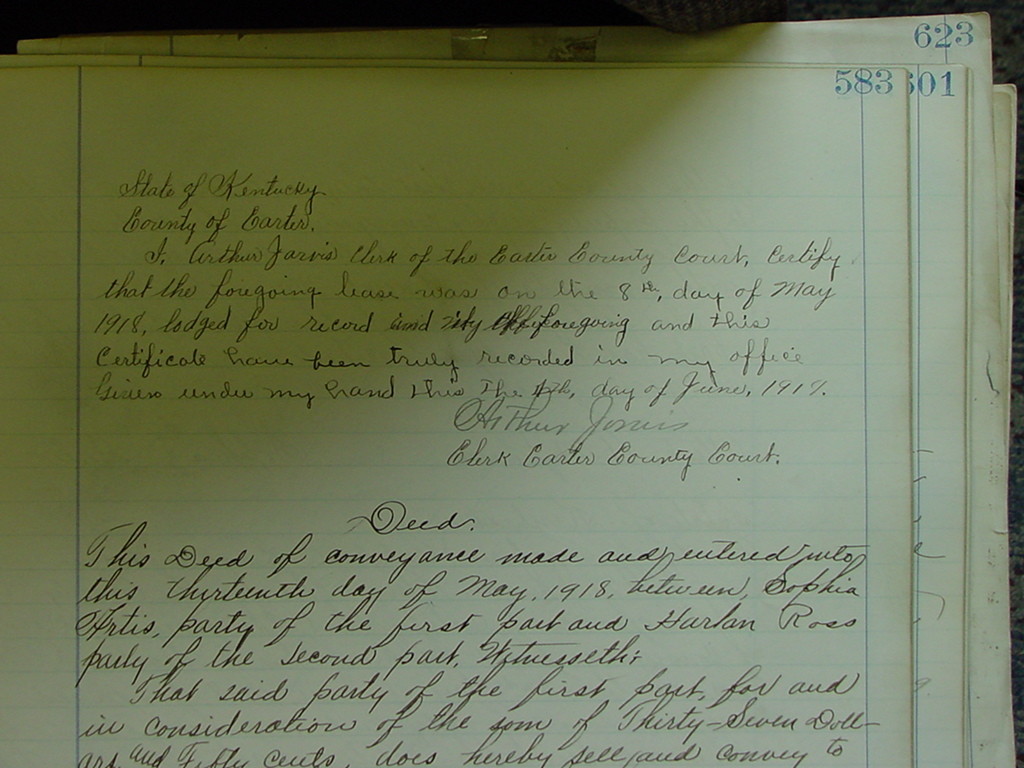 623
583 601
State of Kentucky
County of Carter.
I, Arthur Jarvis Clerk of the Carter County Court, Certify
that the foregoing lease was on the 8th, day of May
1918, lodged for record and foregoing and this
Certificate have been truly recorded in my office
Given under my hand this The 4th, day of June, 1919.
Arthur Jarvis
Clerk Carter County Court.
Deed.
This Deed of conveyance made and entered into
this thirteenth day of May, 1918, between, Sophia
Artis, party of the first part and Harlan Ross
party of the second part, Witnesseth:
That said party of the first part, for and
in consideration of the som of Thirty-Seven Doll-
ars, and Fifty cents, does hereby sell and convey to